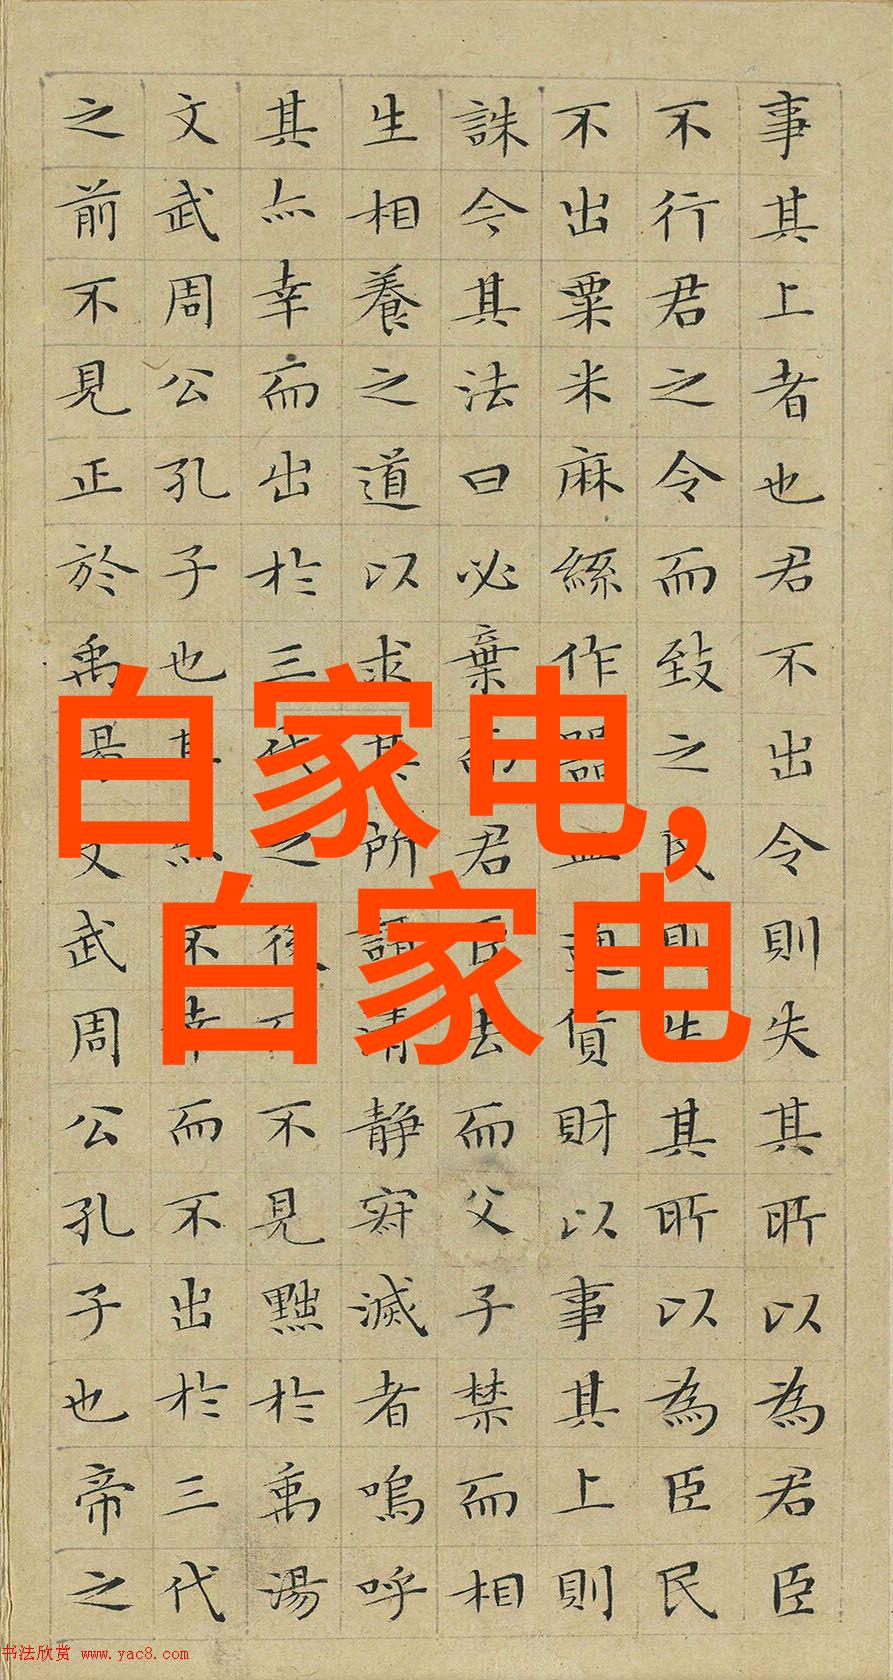 事其上者也君不出令則失其所以為君臣
不行君之令而致之民則其所以為臣民
不出粟米麻絲作器皿通貨財以事其上則
誅今其法曰必棄而君臣去而父子禁而相
生相養之道以求其所謂清静寂滅者嗚呼
其亦幸而出於三代之後不見黜於禹湯
文武周公孔子也其亦不幸而不出於三代
之前不見正於禹湯文武周公孔子也帝之
白家电,
白家电
书法欣赏 www.yac8.com